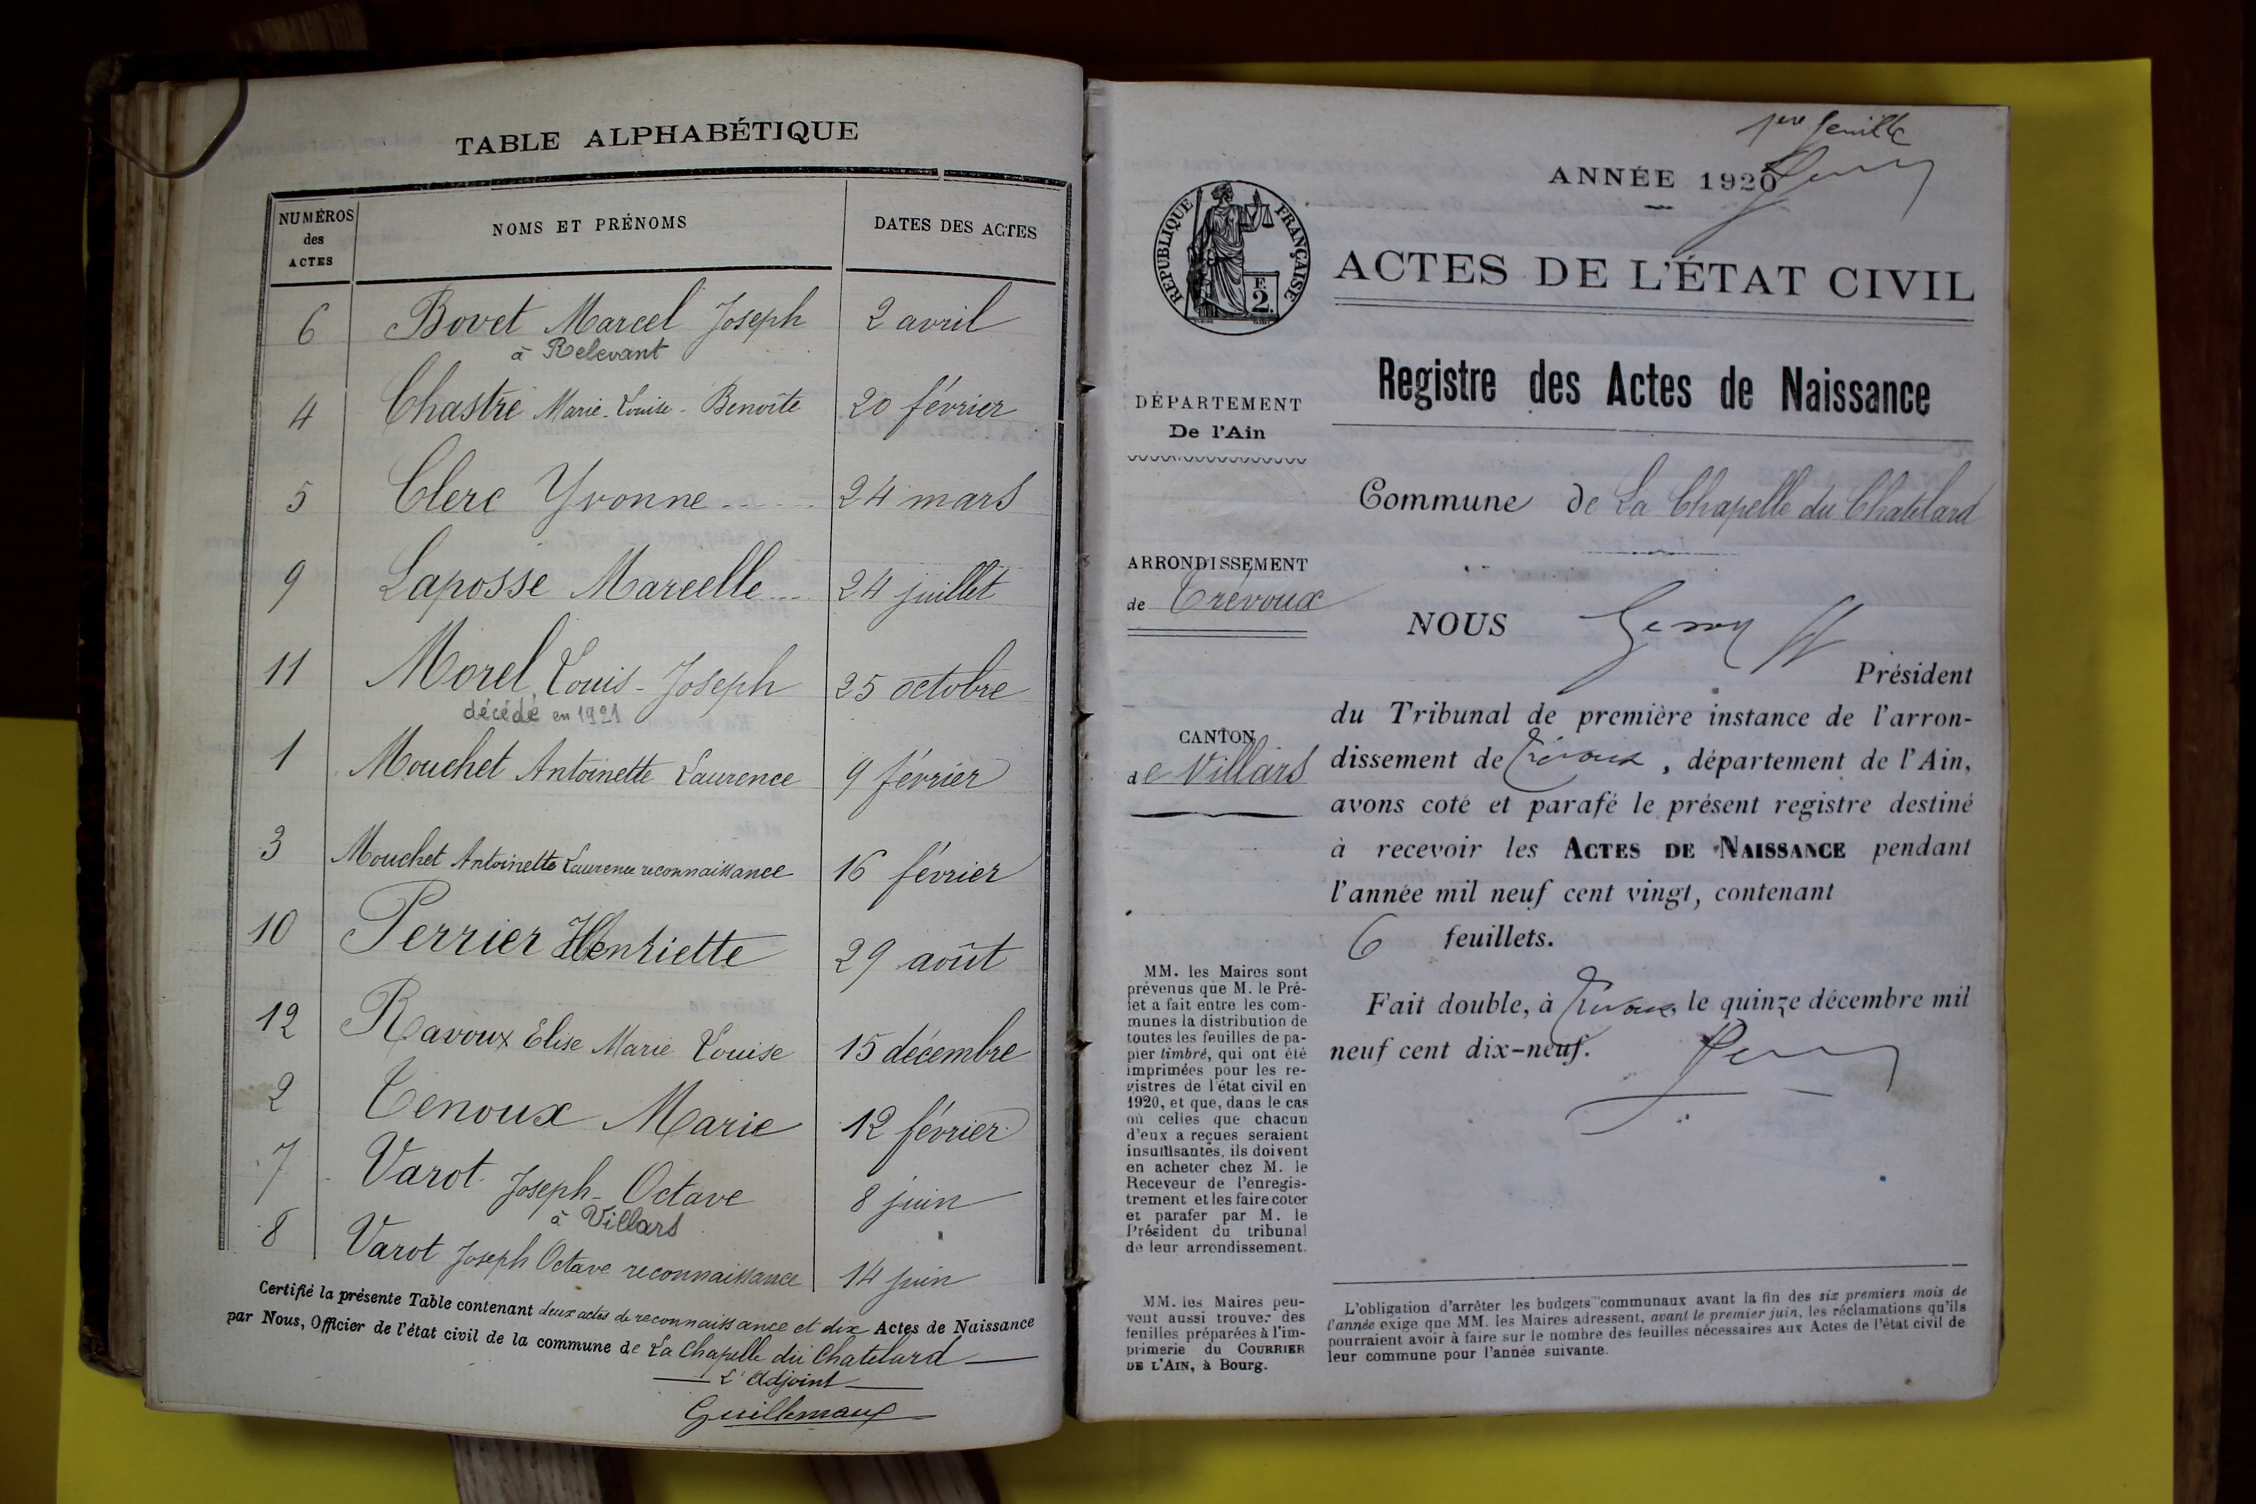 TABLE ALPHABÉTIQUE
NUMÉROS des ACTES NOMS ET PRÉNOMS DATES DES ACTES
6 Bovet Marcel Joseph 2 avril
à Relevant
4 Chastre Marie-Louise-Benoite 20 février
5 Clerc Yvonne 24 mars
9 Laposse Marcelle 24 juillet
11 Morel Louis-Joseph 25 octobre
décédé en 1921
1 Mouchet Antoinette Laurence 9 février
3 Mouchet Antoinette Laurence reconnaissance 16 février
10 Perrier Henriette 29 août
12 Ravoux Elise Marie Louise 15 décembre
2 Tenoux Marie 12 février
7 Varot Joseph-Octave 8 juin
à Villars
8 Varot Joseph Octave reconnaissance 14 juin
Certifié la présente Table contenant deux actes de reconnaissance et dix Actes de Naissance
par Nous, Officier de l'état civil de la commune de La Chapelle du Chatelard
L'Adjoint
Guillemaux
1ere feuille
ANNÉE 1920
RÉPUBLIQUE FRANÇAISE
F. 2.
ACTES DE L'ÉTAT CIVIL
Registre des Actes de Naissance
DÉPARTEMENT
De l'Ain
Commune de La Chapelle du Chatelard
ARRONDISSEMENT
de Trévoux
CANTON
de Villars
NOUS
Président
du Tribunal de première instance de l'arron-
dissement de Trévoux, département de l'Ain,
avons coté et parafé le présent registre destiné
à recevoir les ACTES DE NAISSANCE pendant
l'année mil neuf cent vingt, contenant
6 feuillets.
Fait double, à Trévoux, le quinze décembre mil
neuf cent dix-neuf.
MM. les Maires sont
prévenus que M. le Pré-
fet a fait entre les com-
munes la distribution de
toutes les feuilles de pa-
pier timbré, qui ont été
imprimées pour les re-
gistres de l'état civil en
1920, et que, dans le cas
où celles que chacun
d'eux a reçues seraient
insuffisantes, ils doivent
en acheter chez M. le
Receveur de l'enregis-
trement et les faire coter
et parafer par M. le
Président du tribunal
de leur arrondissement.
MM. les Maires peu-
vent aussi trouver des
feuilles préparées à l'im-
primerie du COURRIER
DE L'AIN, à Bourg.
L'obligation d'arrêter les budgets communaux avant la fin des six premiers mois de
l'année exige que MM. les Maires adressent, avant le premier juin, les réclamations qu'ils
pourraient avoir à faire sur le nombre des feuilles nécessaires aux Actes de l'état civil de
leur commune pour l'année suivante.